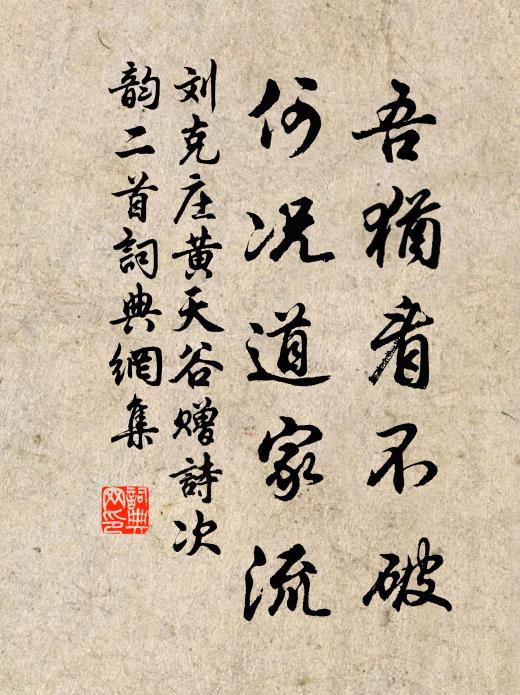 吾猶看不破
何况道家流
刘克庄黄天谷赠詩次
韵二首詞典網集
詞典
网印